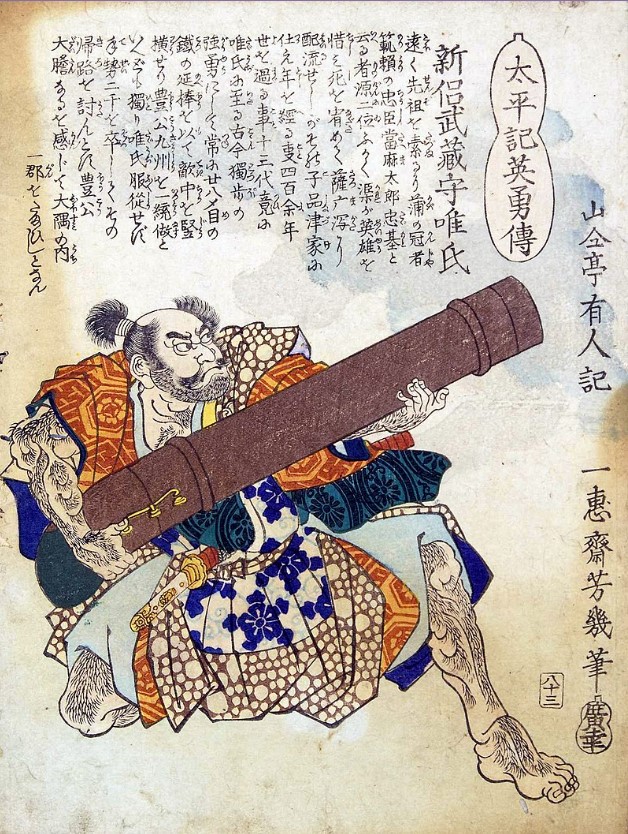 山々亭有人記
一惠齋芳幾筆
廣幸
八十三
太平記英勇傳
新侶武藏守唯氏
遠く先祖を索るに蒲の冠者
範頼の忠臣當麻太郎忠基と
云る者源二位ふかく渠が英雄を
惜み死を宥めて薩戸潟に
配流せしがその子品津家に
仕え年を經る事四百余年
世を過る事十三代竟に
唯氏に至る古今獨歩の
強勇にして常に廿八〆目の
鐵の延棒を以て敵中を竪
横せり豊公九州を綏做と
いへども獨り唯氏服従せず
手勢二千を卒してその
帰路を討んとす豊公
大膽なるを感じて大隅の内
一郡をたまひしとなん